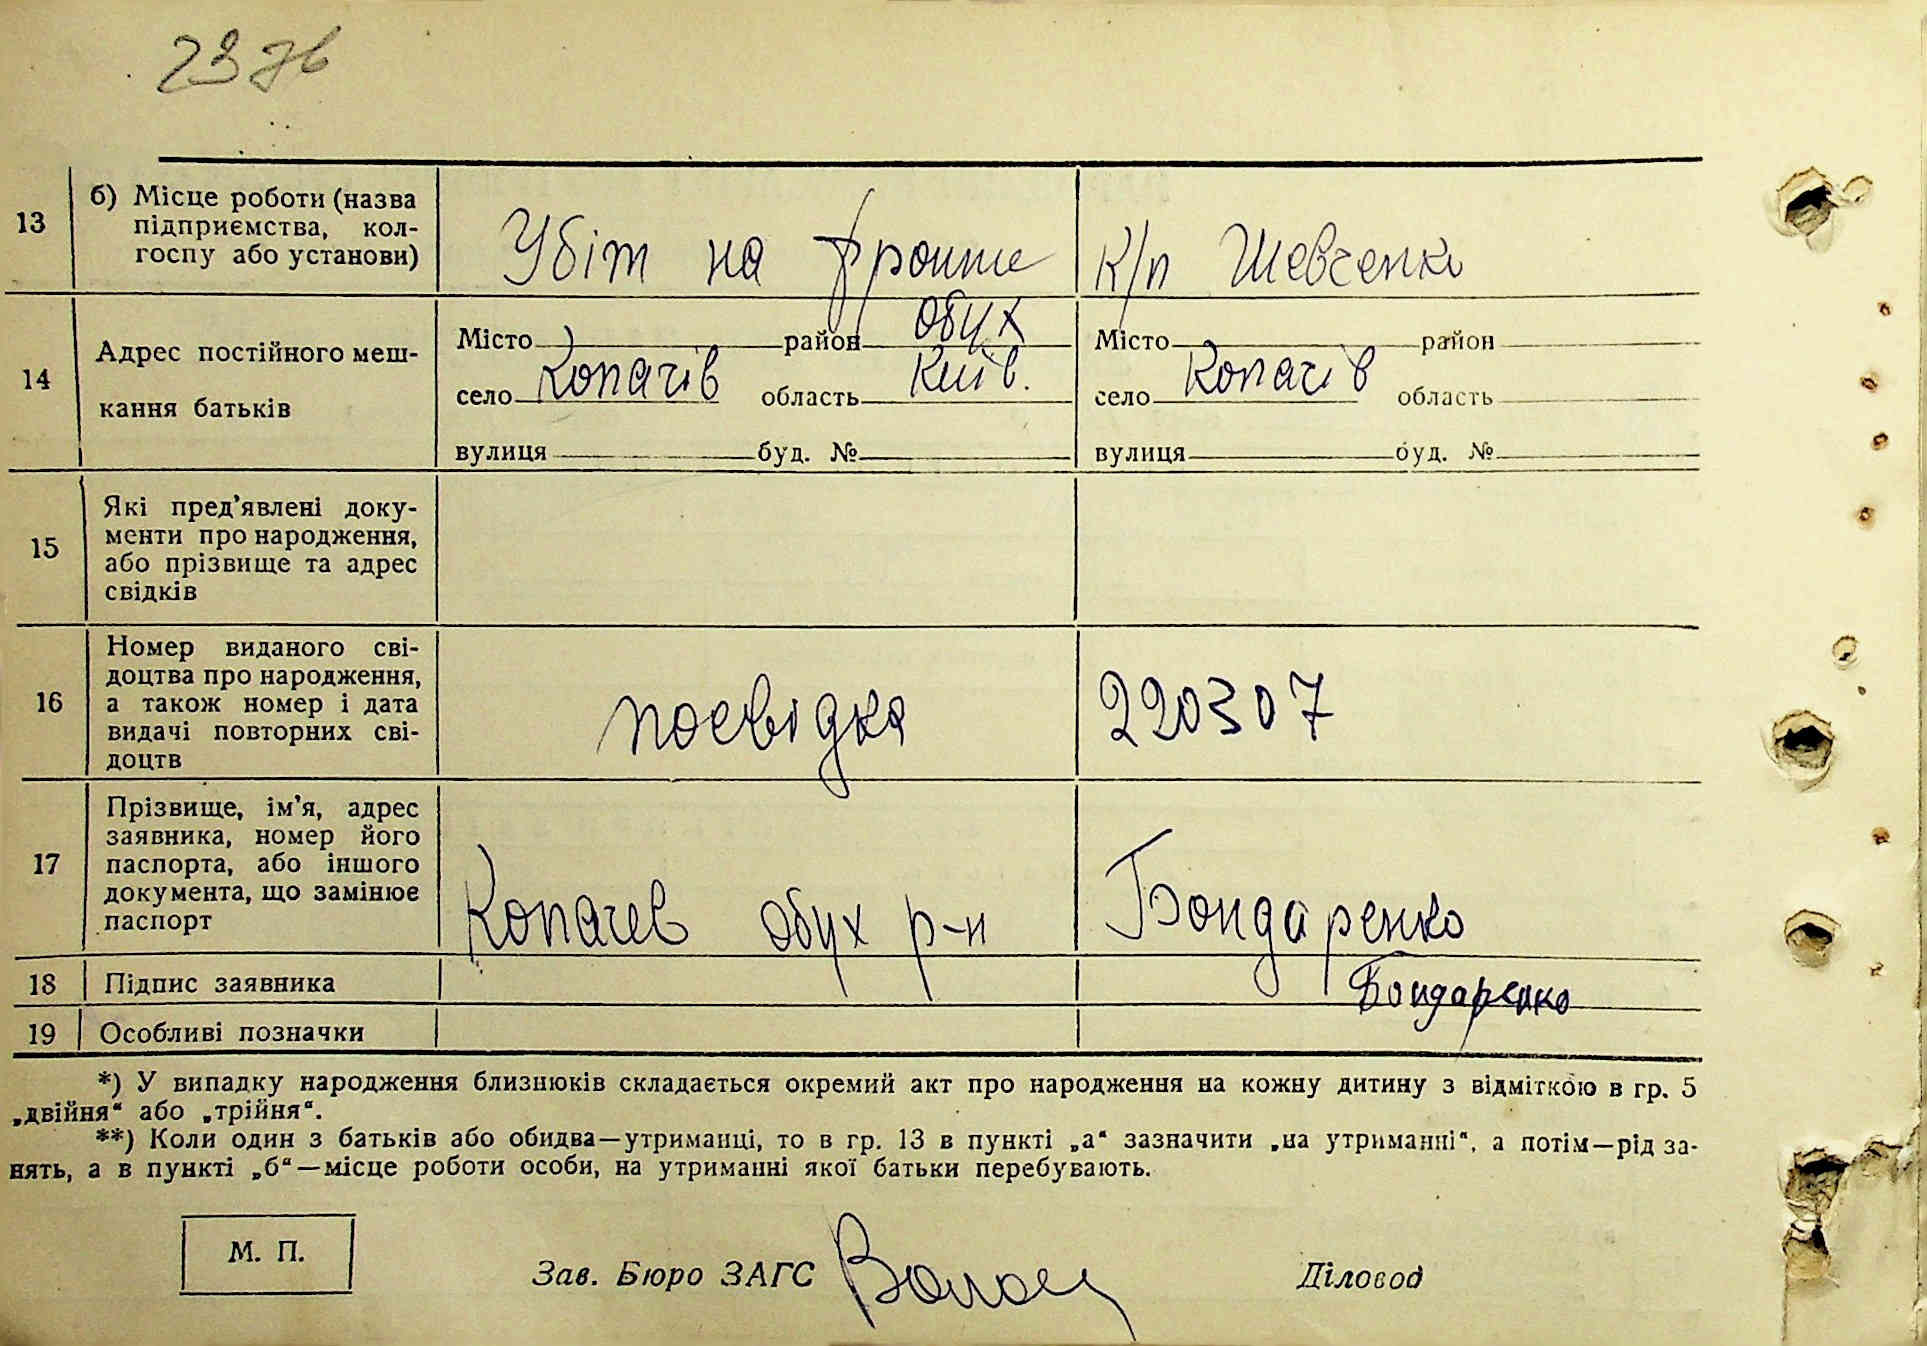 23 зв
13 б) Місце роботи (назва
підприємства, кол-
госпу або установи)
Убіт на фронте К/п Шевченко
14 Адрес постійного меш-
кання батьків
Місто район Обух Місто район
село Копачів область Київ. село Копачів область
вулиця буд. № вулиця буд. №
15 Які пред'явлені доку-
менти про народження,
або прізвище та адрес
свідків
16 Номер виданого сві-
доцтва про народження,
а також номер і дата
видачі повторних сві-
доцтв
посвідка 220307
17 Прізвище, ім'я, адрес
заявника, номер його
паспорта, або іншого
документа, що замінює
паспорт
Копачев Обух р-н Бондаренко
18 Підпис заявника Бондаренко
19 Особливі позначки
*) У випадку народження близнюків складається окремий акт про народження на кожну дитину з відміткою в гр. 5
„двійня“ або „трійня“.
**) Коли один з батьків або обидва—утриманці, то в гр. 13 в пункті „а“ зазначити „на утриманні“, а потім—рід за-
нять, а в пункті „б“—місце роботи особи, на утриманні якої батьки перебувають.
М. П.
Зав. Бюро ЗАГС Діловод